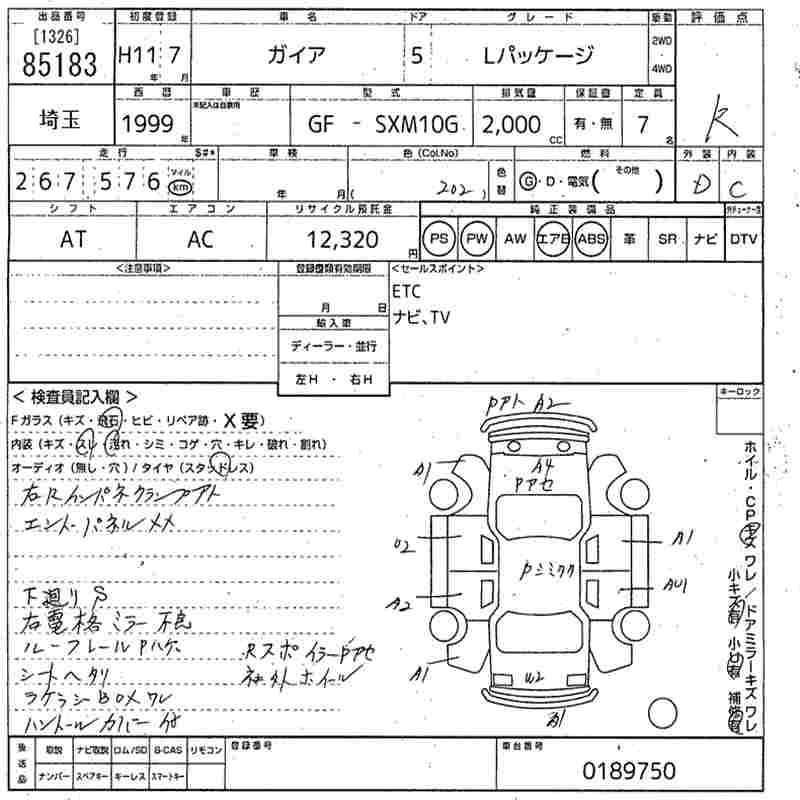 出品番号 初度登録 車名 ドア グレード 駆動 評価点
[1326]
85183 H11年 7月 ガイア 5 Lパッケージ 2WD・4WD
埼玉 西暦 車歴 型式 排気量 保証書 定員
※記入は自家用
1999年 GF - SXM10G 2,000cc 有・無 7名 R
走行 S#* 車検 色(Col.No) 燃料 外装 内装
267,576 マイル km 年 月( 202 ) 色替 G・D・電気( その他 ) D C
シフト エアコン リサイクル預託金 純正装備品
AT AC 12,320円 PS PW AW エアB ABS 革 SR ナビ DTV
<注意事項> 登録書類有効期限 <セールスポイント>
月 日
ETC
ナビ、TV
輸入車
ディーラー・並行
左H ・ 右H
<検査員記入欄> キーロック
Fガラス(キズ・飛石・ヒビ・リペア跡・X要)
内装(キズ・スレ・汚れ・シミ・コゲ・穴・キレ・破れ・割れ)
オーディオ(無し・穴)/タイヤ(スタッドレス)
右Rインパネクランプアト
エントパネルメメ
下廻りS
右電格ミラー不良
ルーフレールPハゲ Rスポイラー Pアセ
シートヘタリ 社外ホイール
ラゲッジBOXワレ
ハンドルカバー付
Pアト A2
A4
Pアセ
A1 A1
U2 A1
Pシミククク
A2 AU1
A1
U2
A1
ホイル・CPキズ ワレ/ドアミラーキズ ワレ
小キズ有 小凹有 補修有
後送品 取説 ナビ取説 ロム/SD B-CAS リモコン 登録番号 車台番号
ナンバー スペアキー キーレス スマートキー 0189750